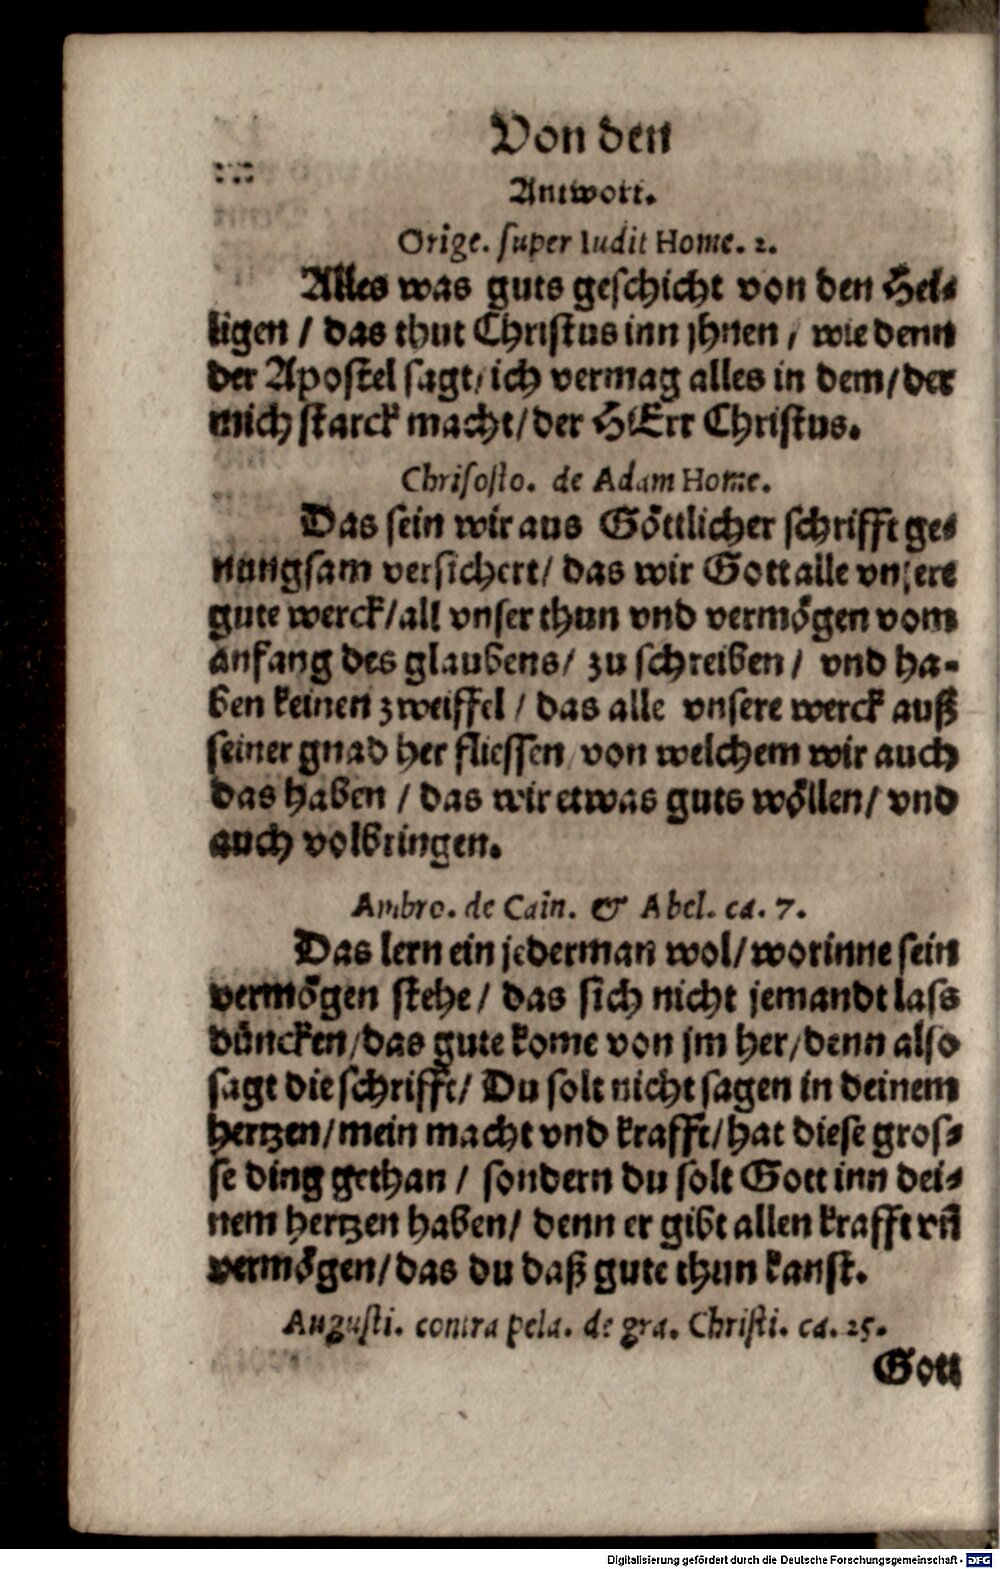 Von den
Antwort.
Orige. super Iudit Home. 2.
Alles was guts geschicht von den Hei-
ligen / das thut Christus inn jhnen / wie denn
der Apostel sagt / ich vermag alles in dem / der
mich starck macht / der HErr Christus.
Chrisosto. de Adam Home.
Das sein wir aus Göttlicher schrifft ge-
nungsam versichert / das wir Gott alle vnsere
gute werck / all vnser thun vnd vermögen vom
anfang des glaubens / zu schreiben / vnd ha-
ben keinen zweiffel / das alle vnsere werck auß
seiner gnad her fliessen / von welchem wir auch
das haben / das wir etwas guts wöllen / vnd
auch volbringen.
Ambro. de Cain. & Abel. ca. 7.
Das lern ein jederman wol / worinne sein
vermögen stehe / das sich nicht jemandt lass
düncken / das gute kome von jm her / denn also
sagt die schrifft / Du solt nicht sagen in deinem
hertzen / mein macht vnd krafft / hat diese gros-
se ding gethan / sondern du solt Gott inn dei-
nem hertzen haben / denn er gibt allen krafft vñ
vermögen / das du daß gute thun kanst.
Augusti. contra pela. de gra. Christi. ca. 25.
Gott
Digitalisierung gefördert durch die Deutsche Forschungsgemeinschaft - DFG